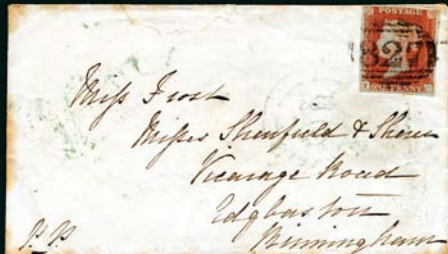 POSTAGE
827
ONE PENNY
Miss Frost
Misses Shenfield & Shaw
Vicarage Road
Edgbaston
Birmingham
P.P.